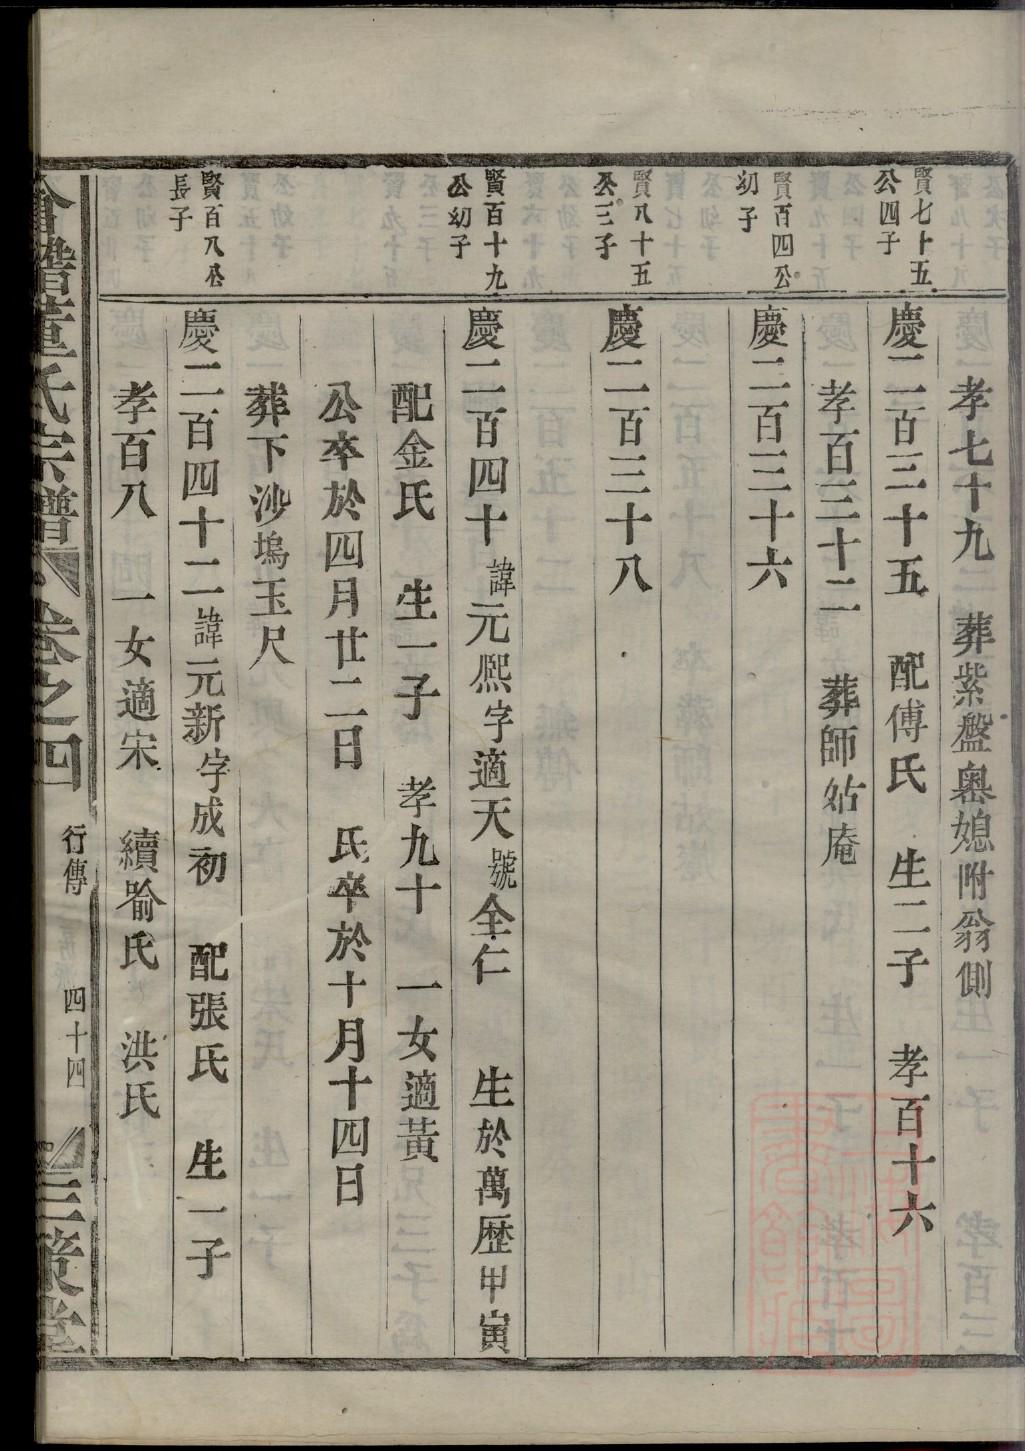 孝七十九　葬紫盤奧媳附翁側
賢七十五
公四子
慶二百三十五　配傅氏　生二子　孝百十六
孝百三十二　葬師姑庵
賢百四公
幼子
慶二百三十六
賢八十五
公三子
慶二百三十八
賢百十九
公幼子
慶二百四十諱元熙字適天號全仁　生於萬歷甲寅
配金氏　生一子　孝九十　一女適黃
公卒於四月廿二日　氏卒於十月十四日
葬下沙塢玉尺
賢百八公
長子
慶二百四十二諱元新字成初　配張氏　生一子
孝百八　一女適宋　續喻氏　洪氏
董氏宗譜　卷之四　行傳　四十四　三策堂